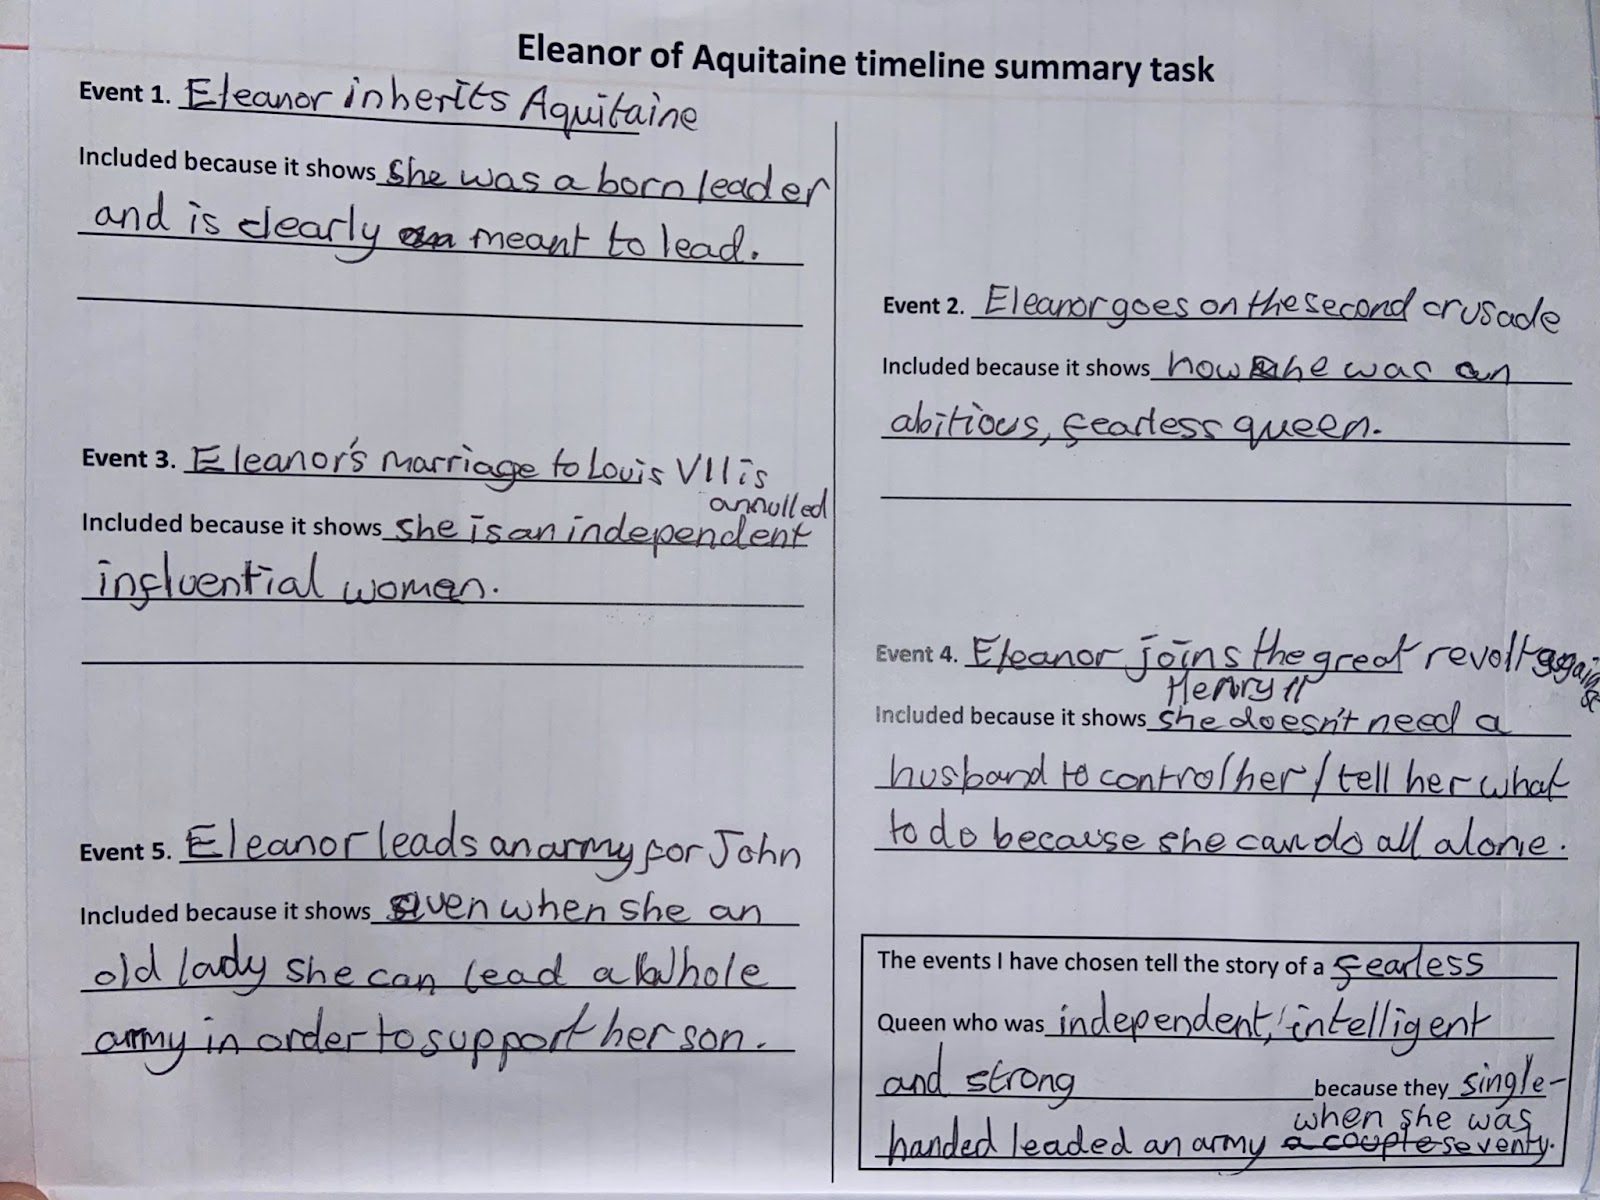 Eleanor of Aquitaine timeline summary task
Event 1. Eleanor inherits Aquitaine
Included because it shows she was a born leader
and is clearly meant to lead.
Event 2. Eleanor goes on the second crusade
Included because it shows how she was an
abitious, fearless queen.
Event 3. Eleanor's marriage to Louis VII is
annulled
Included because it shows she is an independent
influential women.
Event 4. Eleanor joins the great revolt against
Henry II
Included because it shows she doesn't need a
husband to control her / tell her what
to do because she can do all alone.
Event 5. Eleanor leads an army for John
Included because it shows even when she an
old lady she can lead a whole
army in order to support her son.
The events I have chosen tell the story of a fearless
Queen who was independent, intelligent
and strong because they single-
when she was
handed leaded an army a couple seventy.